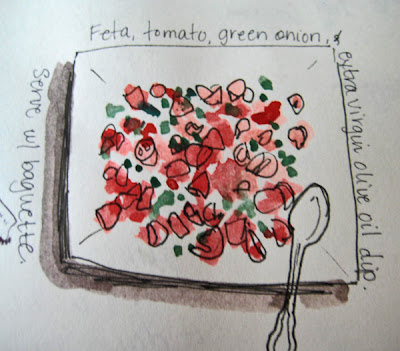 Feta, tomato, green onion, &
extra virgin olive oil dip.
Serve w/ baguette.